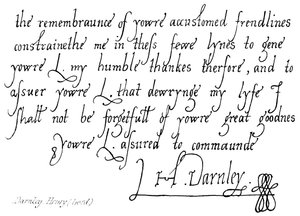 the remembraunce of yowre accustomed frendlines
constrainethe me in thess fewe lynes to geue
yowre L. my humble thankes therfore, and to
assuer yowre L. that dewrynge my lyfe I
shall not be forgetfull of yowre great goodnes
yowre L. assured to commaunde
H. Darnley.
Darnley, Henry, (Lord)